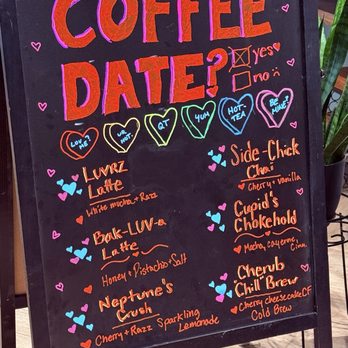 COFFEE
DATE?
yes
no
LUV ME?
UR HOT
QT
YUM
HOT-TEA
BE MINE?
LUVRZ
Latte
White mocha + Razz
BAK-LUV-a
Latte
Honey + Pistachio + Salt
Neptune's
Crush
Cherry + Razz Sparkling
Lemonade
Side-Chick
Chai
Cherry + vanilla
Cupid's
Chokehold
Mocha, cayenne,
Cinn.
Cherub
Chill Brew
Cherry cheesecake CF
Cold Brew